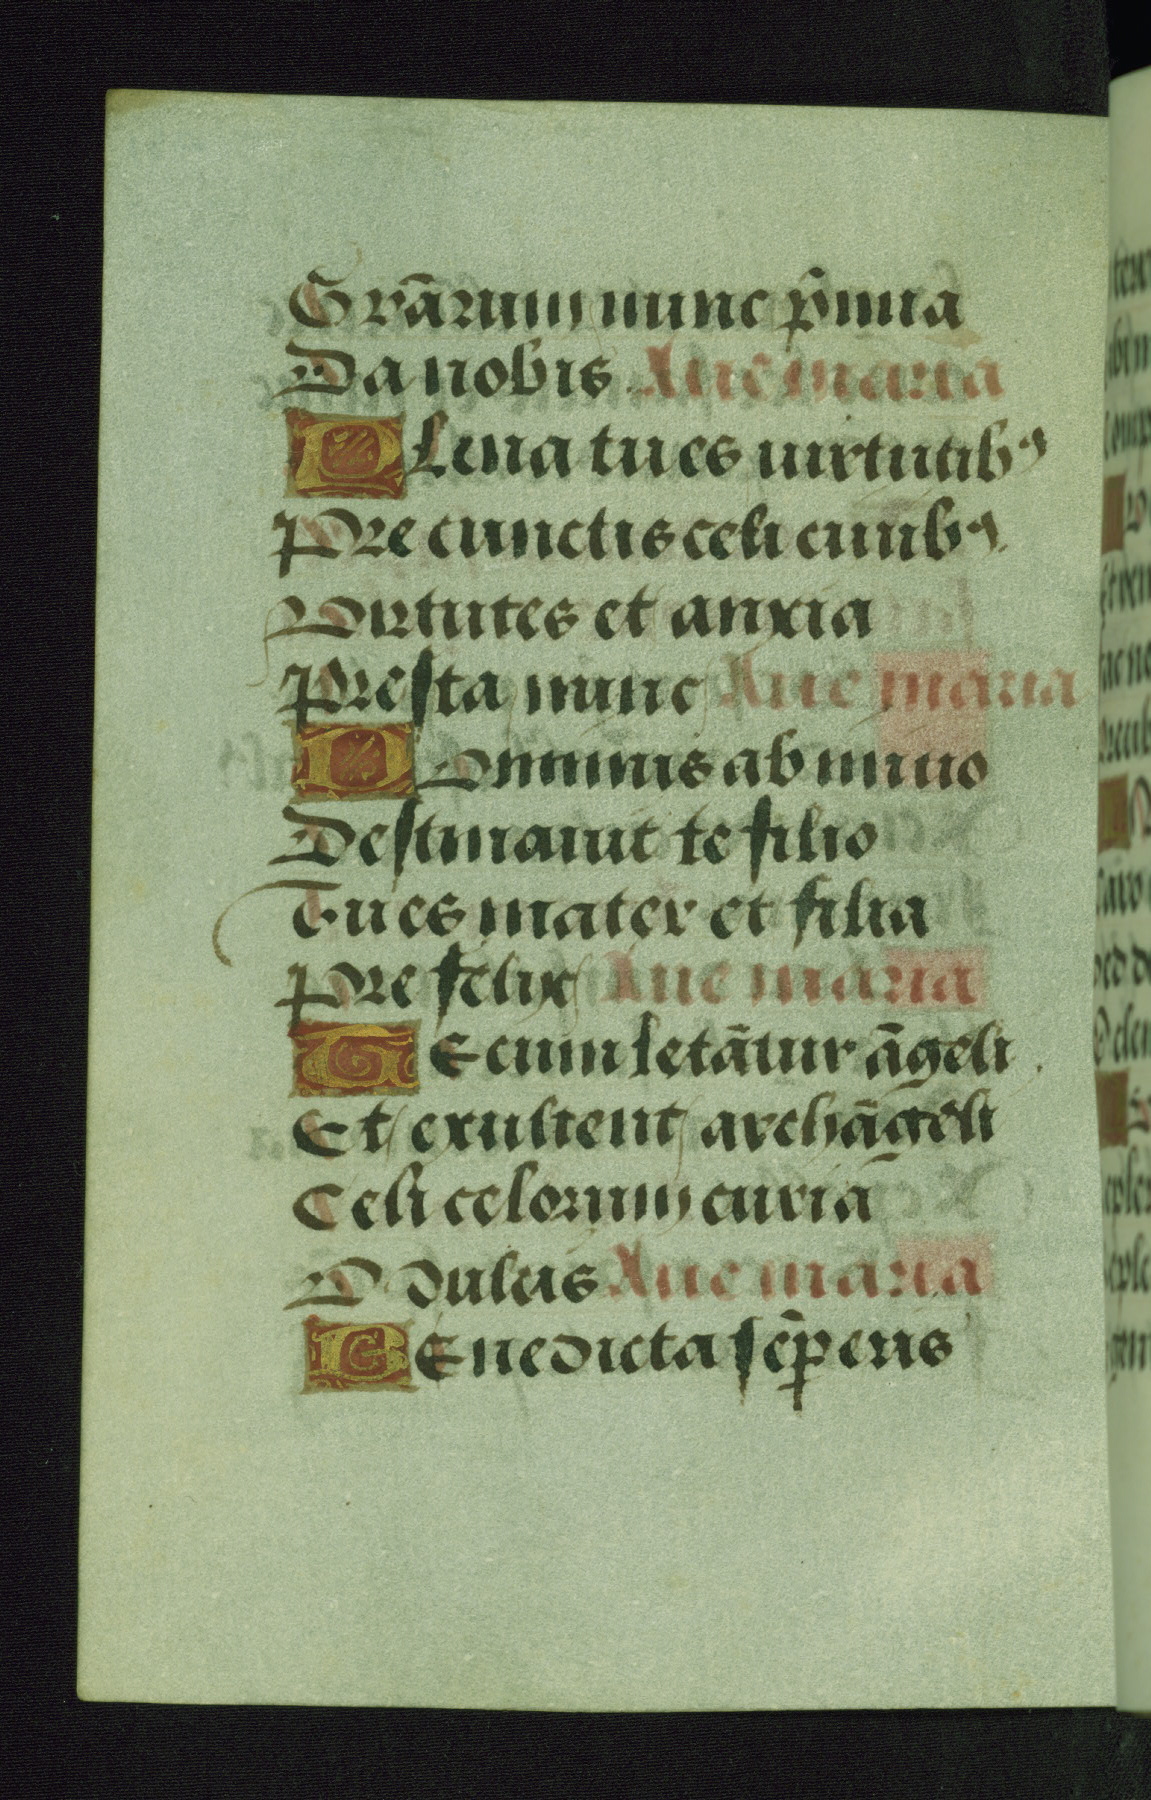 Gr̃arum nunc p̃mia
Da nobis Aue maria
PLena tu es uirtutibꝰ
Pre cunctis celi ciuibꝰ
Virtutes et anxia
Presta nunc Aue maria
DOminus ab imno
Destinauit te filio
Tu es mater et filia
Pre felix Aue maria
TEcum letãtur ãgeli
Et exultent archãgeli
Celi celorum curia
O dulcis Aue maria
BEnedicta sẽp eris